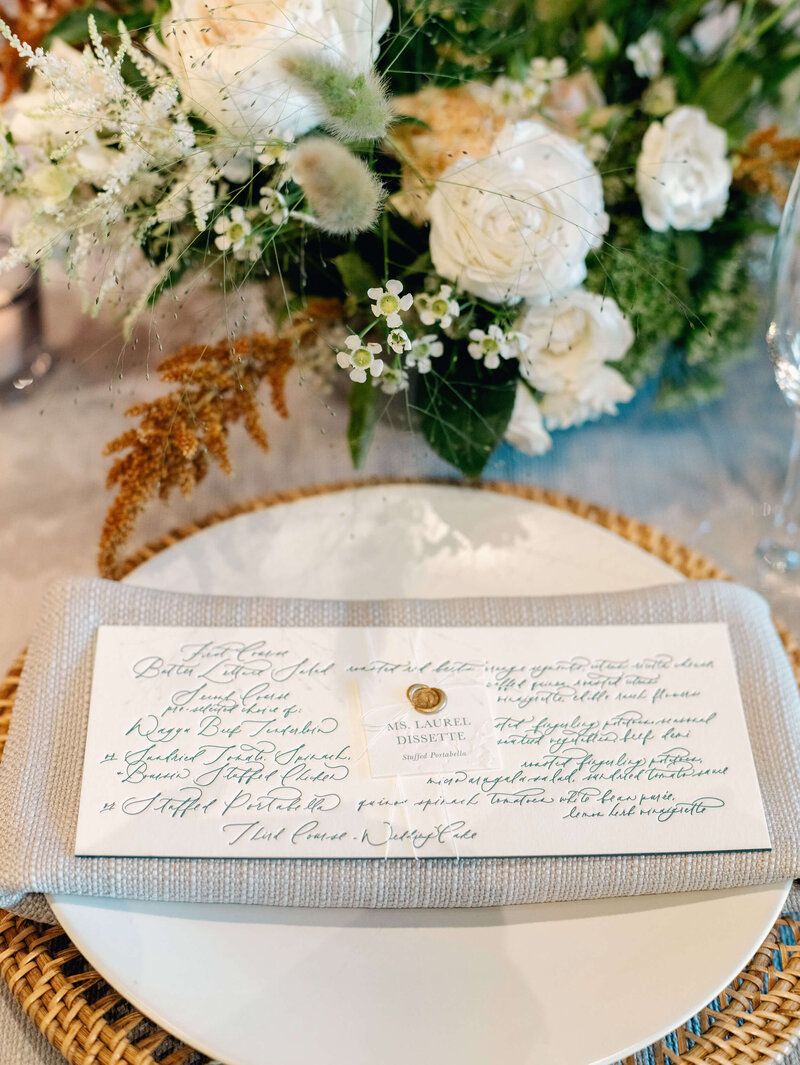 First Course
Butter Lettuce Salad roasted orange segments,
Second Course
roasted
pre-selected choice of:
vinaigrette, edible flowers
Wagyu Beef Tenderloin fingerling potatoes, seasonal
roasted vegetables, beef demi
or Sundried Tomato, Spinach, roasted fingerling potatoes,
Boursin Stuffed Chicken micro arugula salad, sundried tomato sauce
or Stuffed Portabella quinoa spinach tomatoes white bean purée,
lemon herb vinaigrette
Third Course - Wedding Cake
MS. LAUREL
DISSETTE
Stuffed Portabella